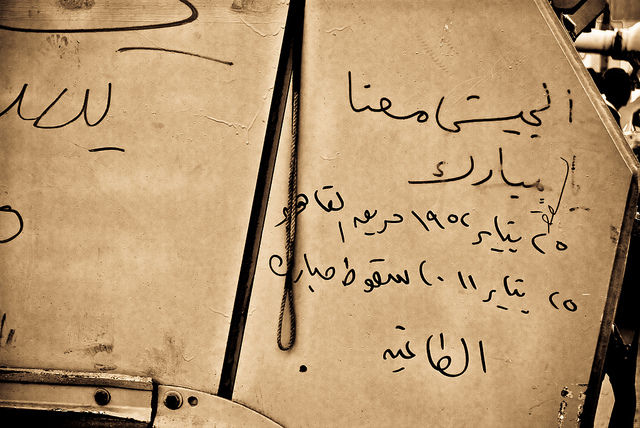 الجيش معنا
مبارك
٢٥ يناير ١٩٥٢ حريق القاهره
٢٥ يناير ٢٠١١ سقوط مبارك
الطاغيه